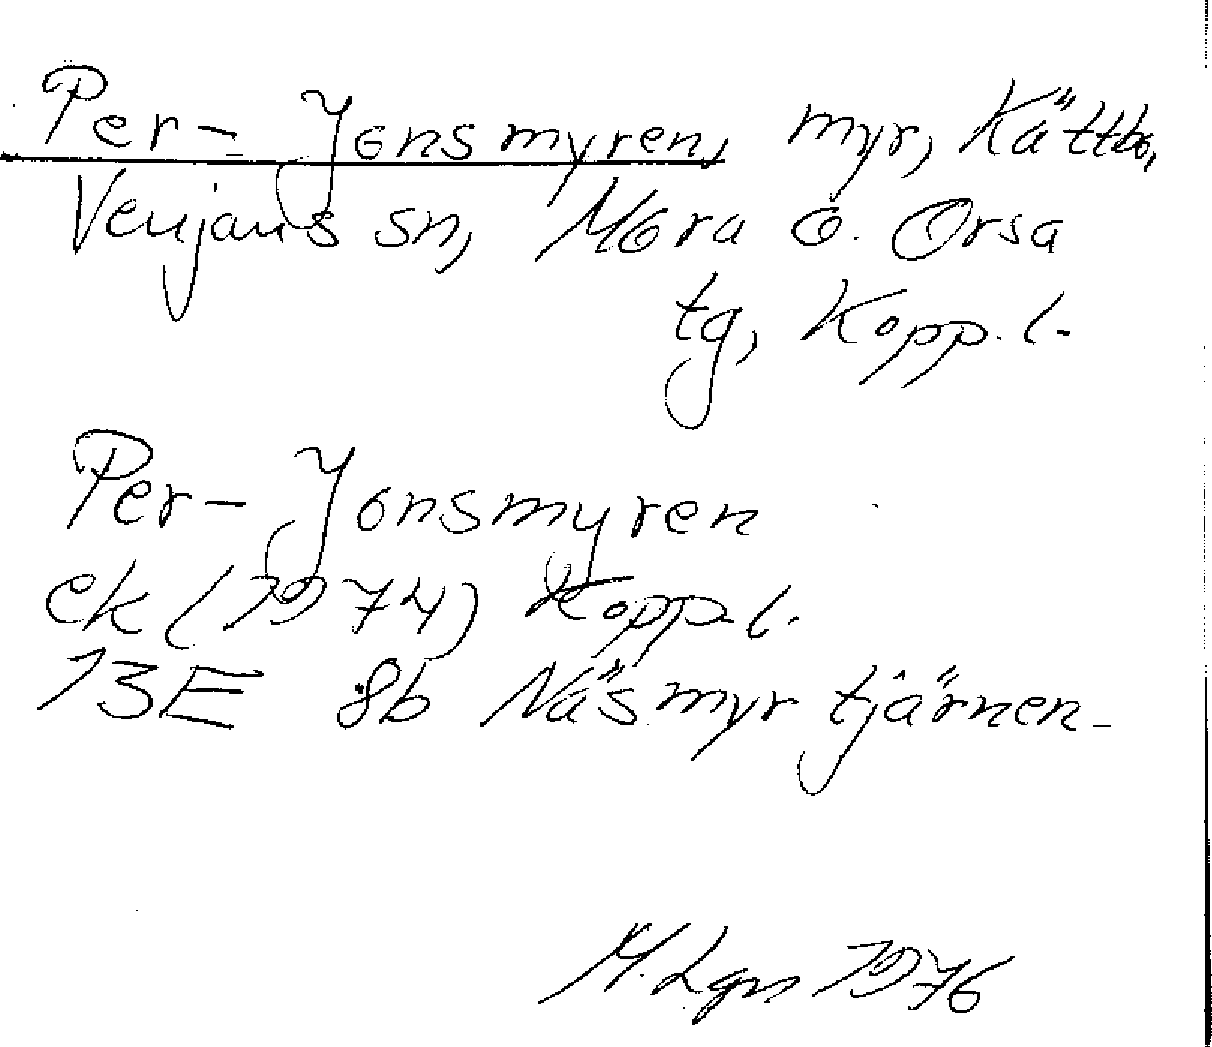 Per-Jonsmyren, myr, Kättbo,
Venjans sn, Mora o. Orsa
tg, Kopp. l.
Per-Jonsmyren
ek (1974) Kopp. l.
13E 8b Näsmyrtjärnen-
M. Lgn 1976